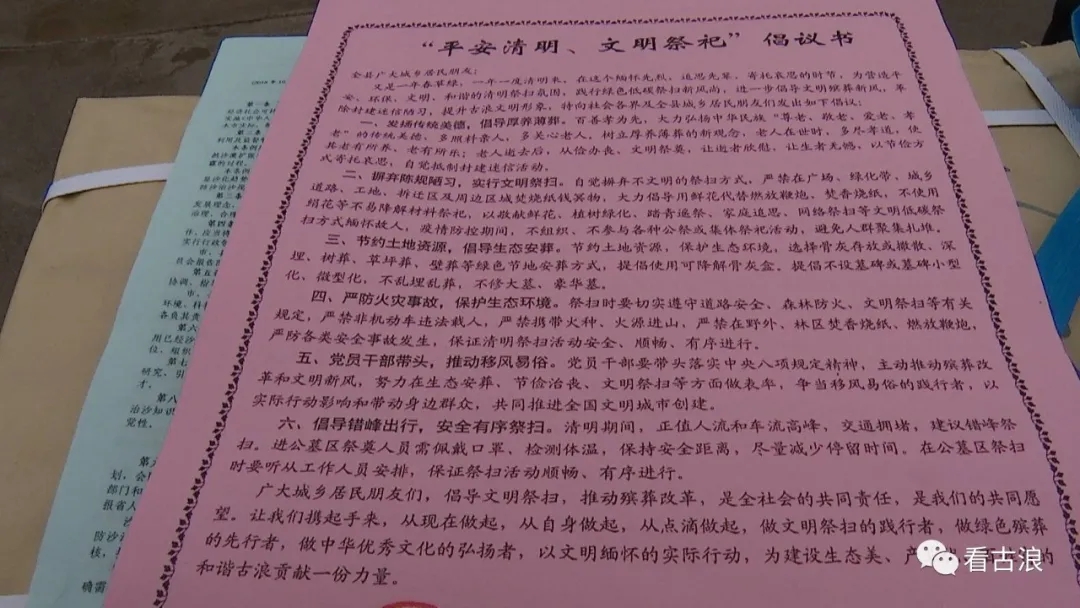 “平安清明、文明祭祀”倡议书
全县广大城乡居民朋友：
又是一年春草绿，一年一度清明来，在这个缅怀先烈、追思先辈、寄托哀思的时节，为营造平
安、环保、文明、和谐的清明祭扫氛围，践行绿色低碳祭扫新风尚，进一步倡导文明殡葬新风，革
除封建迷信陋习，提升古浪文明形象，特向社会各界及全县城乡居民朋友们发出如下倡议：
一、发扬传统美德，倡导厚养薄葬。百善孝为先，大力弘扬中华民族“尊老、敬老、爱老、孝
老”的传统美德，多照料亲人，多关心老人，树立厚养薄葬的新观念，老人在世时，多尽孝道，使
其老有所养、老有所乐；老人逝去后，从俭办丧、文明祭奠，让逝者欣慰，让生者无憾，以节俭方
式寄托哀思，自觉抵制封建迷信活动。
二、摒弃陈规陋习，实行文明祭扫。自觉摒弃不文明的祭扫方式，严禁在广场、绿化带、城乡
道路、工地、拆迁区及周边区域焚烧纸钱冥物，大力倡导用鲜花代替燃放鞭炮、焚香烧纸，不使用
绢花等不易降解材料祭祀，以敬献鲜花、植树绿化、踏青遥祭、家庭追思、网络祭扫等文明低碳祭
扫方式缅怀故人，疫情防控期间，不组织、不参与各种公祭或集体祭祀活动，避免人群聚集扎堆。
三、节约土地资源，倡导生态安葬。节约土地资源，保护生态环境，选择骨灰存放或撒散、深
埋、树葬、草坪葬、壁葬等绿色节地安葬方式，提倡使用可降解骨灰盒。提倡不设墓碑或墓碑小型
化、微型化，不乱埋乱葬，不修大墓、豪华墓。
四、严防火灾事故，保护生态环境。祭扫时要切实遵守道路安全、森林防火、文明祭扫等有关
规定，严禁非机动车违法载人，严禁携带火种、火源进山，严禁在野外、林区焚香烧纸、燃放鞭炮，
严防各类安全事故发生，保证清明祭扫活动安全、顺畅、有序进行。
五、党员干部带头，推动移风易俗。党员干部要带头落实中央八项规定精神，主动推动殡葬改
革和文明新风，努力在生态安葬、节俭治丧、文明祭扫等方面做表率，争当移风易俗的践行者，以
实际行动影响和带动身边群众，共同推进全国文明城市创建。
六、倡导错峰出行，安全有序祭扫。清明期间，正值人流和车流高峰，交通拥堵，建议错峰祭
扫。进公墓区祭奠人员需佩戴口罩、检测体温，保持安全距离，尽量减少停留时间。在公墓区祭扫
时要听从工作人员安排，保证祭扫活动顺畅、有序进行。
广大城乡居民朋友们，倡导文明祭扫，推动殡葬改革，是全社会的共同责任，是我们的共同愿
望。让我们携起手来，从现在做起，从自身做起，从点滴做起，做文明祭扫的践行者，做绿色殡葬
的先行者，做中华优秀文化的弘扬者，以文明缅怀的实际行动，为建设生态美、产
的
和谐古浪贡献一份力量。
看古浪